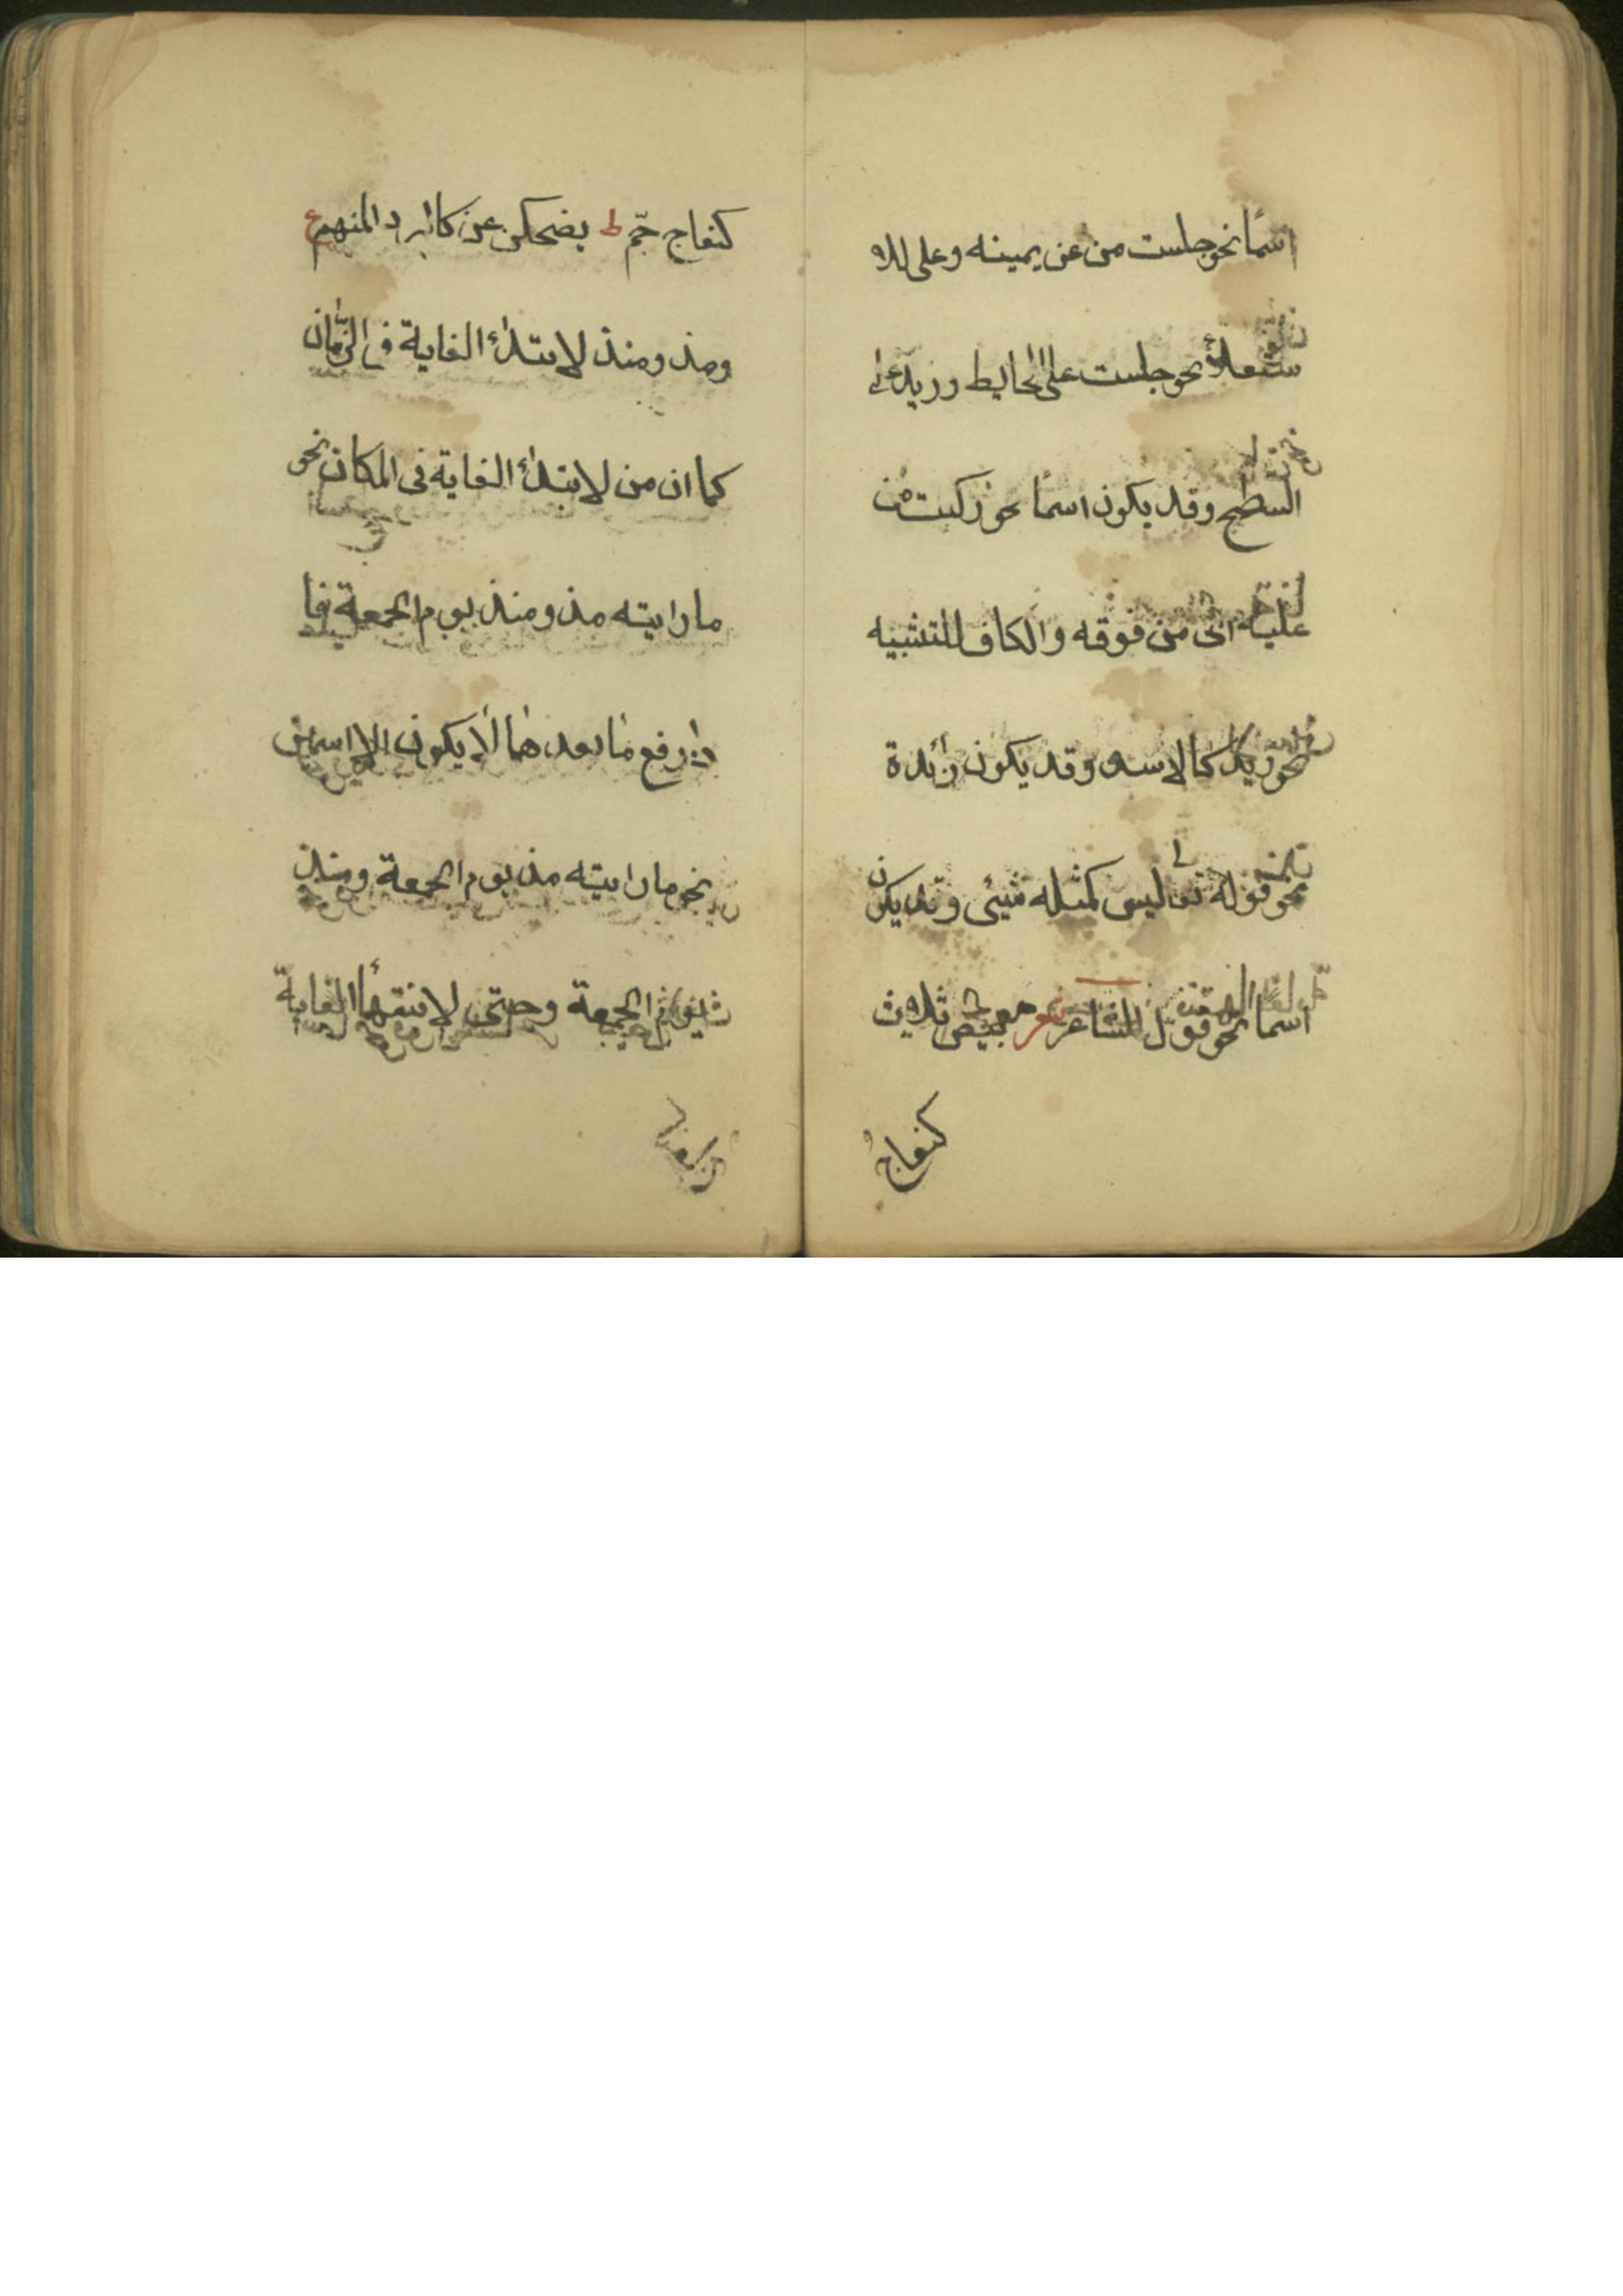 اسمًا نحو جلست من عن يمينه وعلى للا
ستعلاء نحو جلست على الحايط وزيد على
السطح وقد يكون اسمًا نحو ركبت من
عليه اى من فوقه والكاف للتشبيه
نحو زيد كالاسد وقد يكون زائدة
نحو قوله تعالى ليس كمثله شيئى وقد يكون
اسما نحو قول الشاعر شعر بيض ثلاث
كنعاج
كنعاج جمّ ط يضحكن عن كالبرد المنهم ع
ومذ ومنذ لابتداء الغاية فى الزمان
كما ان من لابتداء الغاية فى المكان نحو
ما رايته مذ ومنذ يوم الجمعة فا
ذا رفع ما بعدهما لا يكون الا اسمين
نحو ما رايته مذ يوم الجمعة ومنذ
الجمعة وحتى لانتهاء الغاية